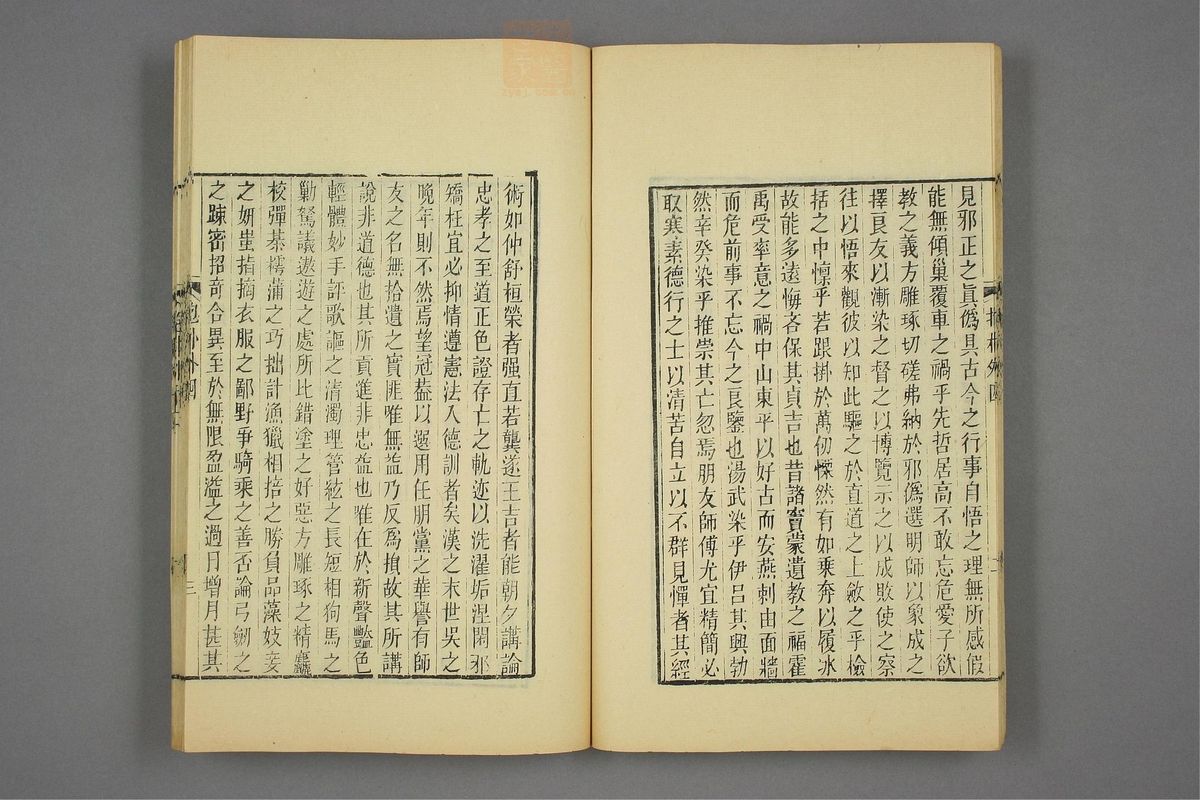 見邪正之眞僞具古今之行事自悟之理無所感假
能無傾巢覆車之禍乎先哲居高不敢忘危愛子欲
教之義方雕琢切磋弗納於邪僞選明師以象成之
擇良友以漸染之督之以博覽示之以成敗使之察
往以悟來觀彼以知此驅之於直道之上斂之乎檢
括之中懍乎若跟掛於萬仞慄然有如乘奔以履冰
故能多遠悔吝保其貞吉也昔諸竇蒙遺教之福霍
禹受率意之禍中山東平以好古而安燕剌由面牆
而危前事不忘今之良鑒也湯武染乎伊吕其興勃
然辛癸染乎推崇其亡忽焉朋友師傅尤宜精簡必
取寒素德行之士以清苦自立以不群見憚者其經
術如仲舒桓榮者强直若龔遂王吉者能朝夕講論
忠孝之至道正色證存亡之軌迹以洗濯垢涅閑邪
矯枉宜必抑情遵憲法入德訓者矣漢之末世吳之
晚年則不然焉望冠葢以選用任朋黨之華譽有師
友之名無拾遺之實匪唯無益乃反爲損故其所講
說非道德也其所貢進非忠益也唯在於新聲豔色
輕體妙手評歌謳之清濁理管絃之長短相狗馬之
勦駑議遨遊之處所比錯塗之好惡方雕琢之精麤
校彈棊樗蒲之巧拙計漁獵相掊之勝負品藻妓妾
之妍蚩指摘衣服之鄙野爭騎乘之善否論弓劒之
之踈密招奇合異至於無限盈溢之過日增月甚其
三